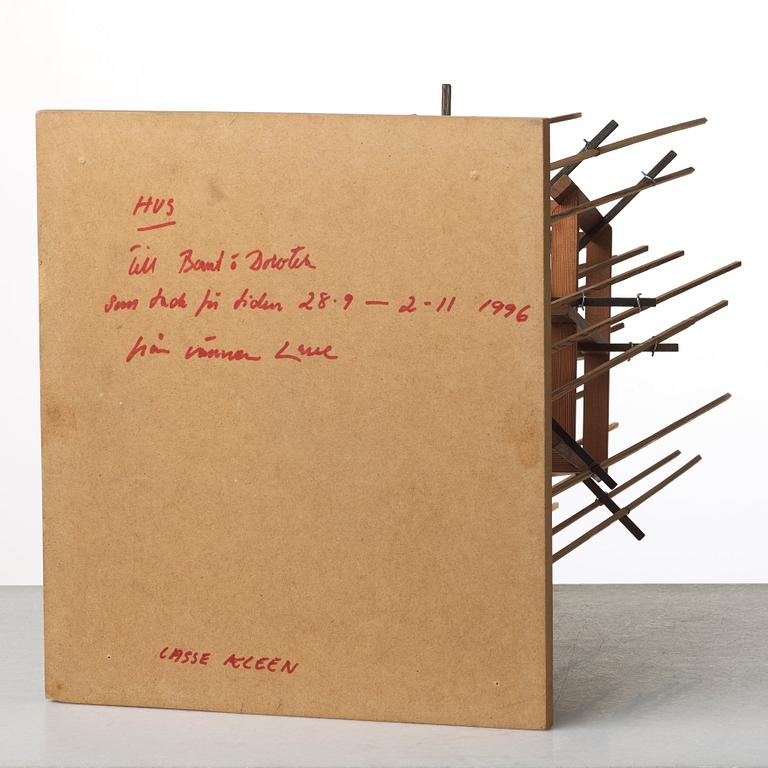 HUS
till Bernt o Doroteh
som tack för tiden 28·9 — 2-11 1996
från vännen Lasse
LASSE ÆLEEN